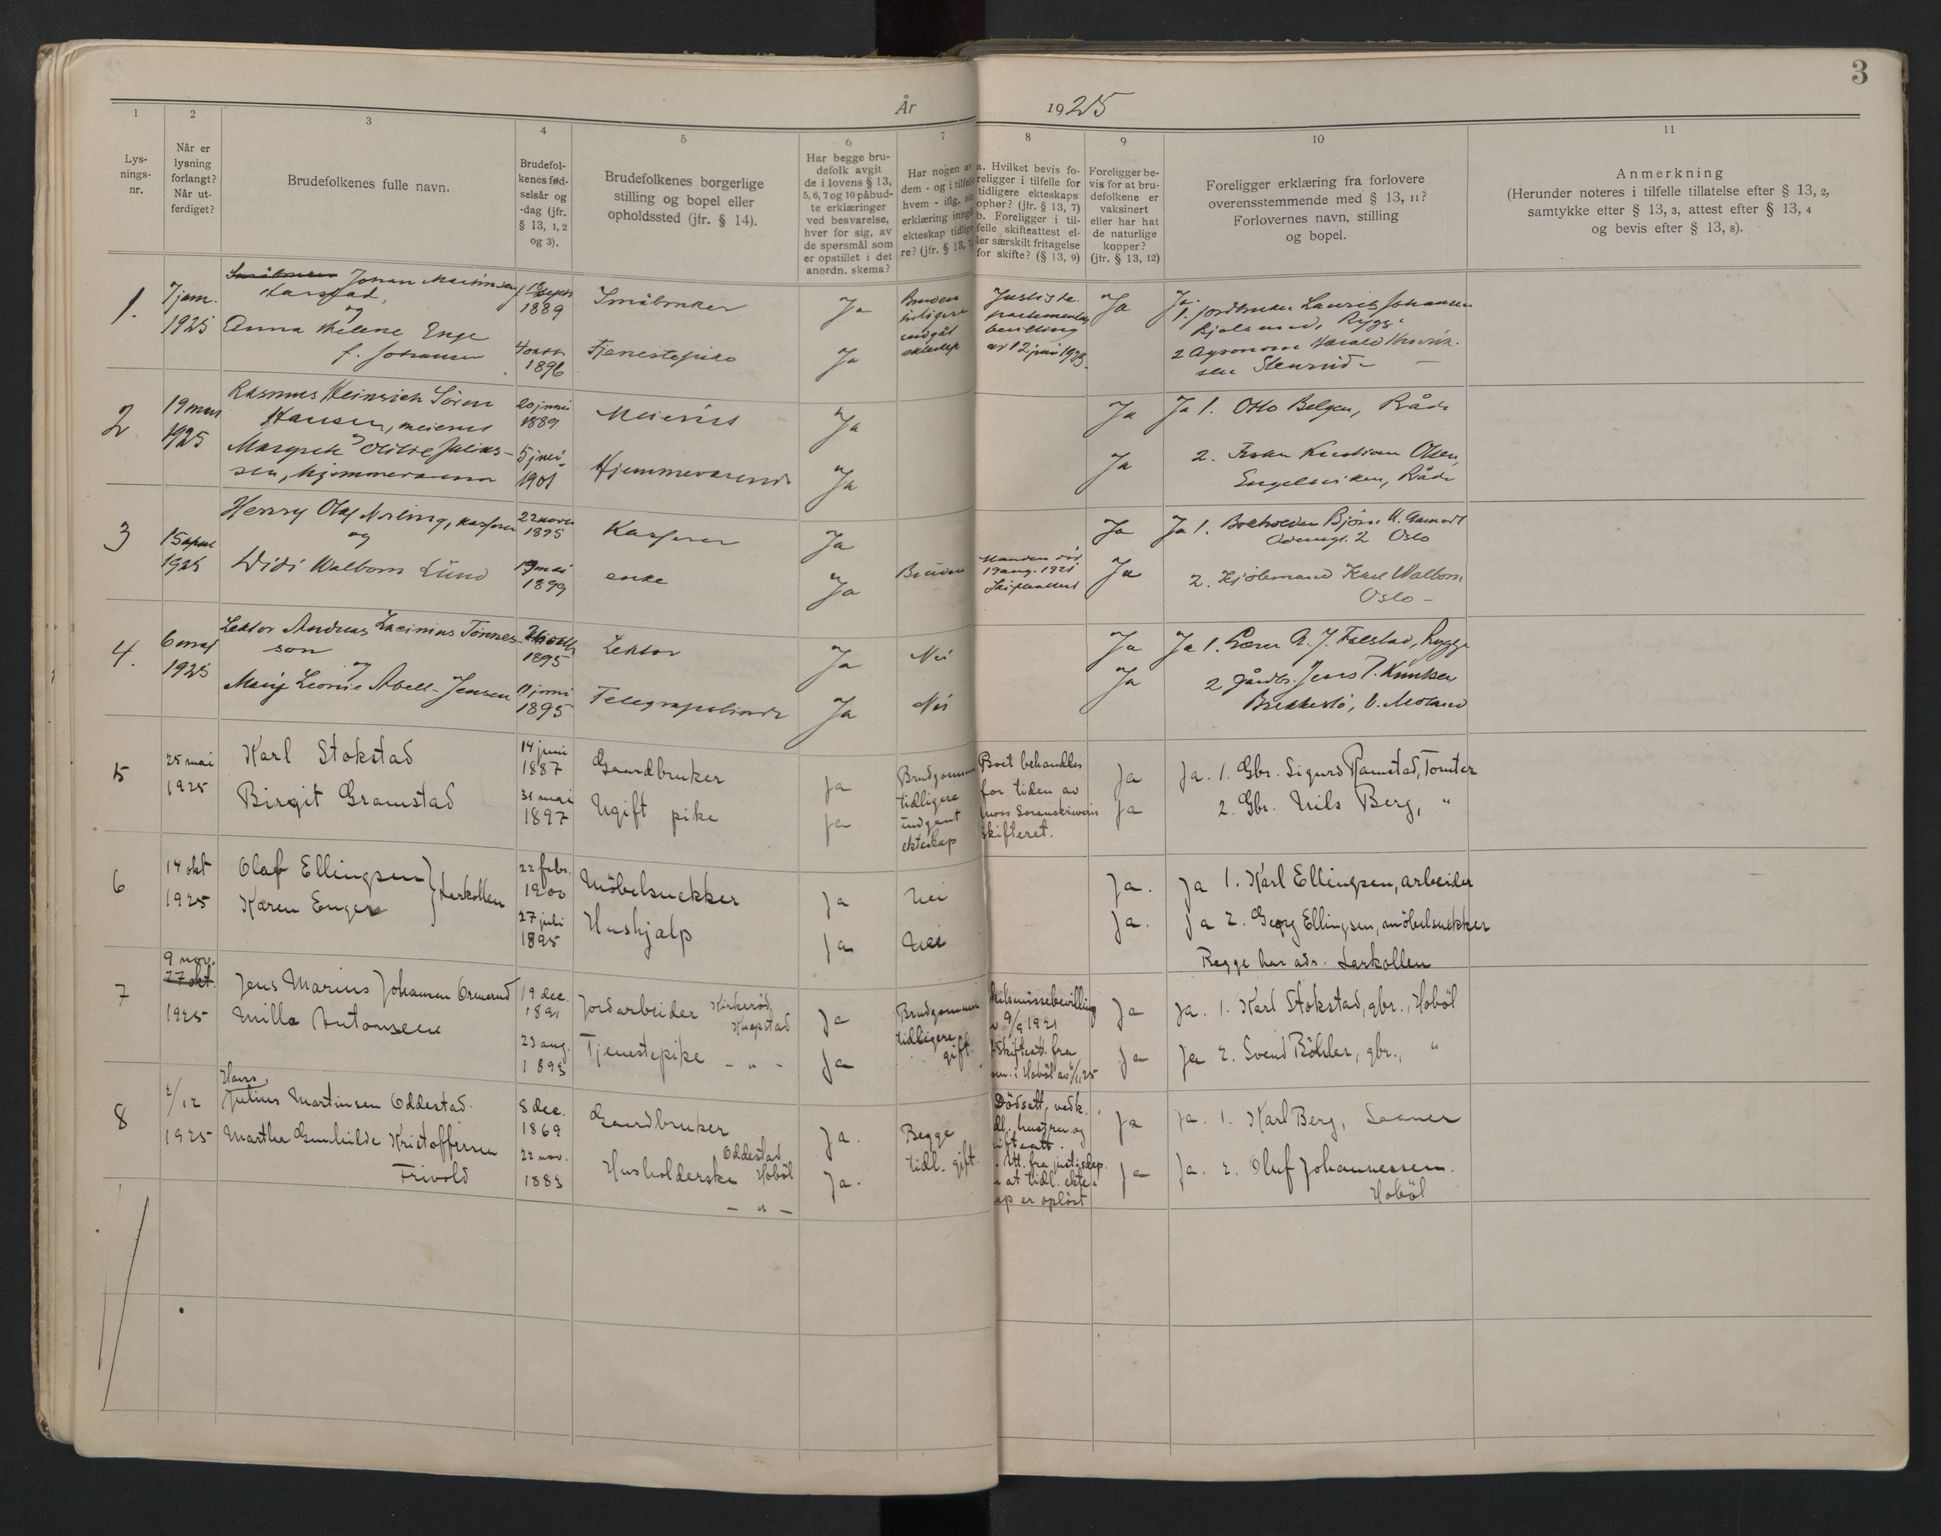 3
År 1925
1
2
3
4
5
6
7
8
9
10
11
Lys-
nings-
nr.
Når er
lysning
forlangt?
Når ut-
ferdiget?
Brudefolkenes fulle navn.
Brudefol-
kenes fød-
selsår og
-dag (jfr.
§ 13, 1, 2
og 3).
Brudefolkenes borgerlige
stilling og bopel eller
opholdssted (jfr. § 14).
Har begge bru-
defolk avgit
de i lovens § 13,
5, 6, 7 og 10 påbud-
te erklæringer
ved besvarelse,
hver for sig, av
de spørsmål som
er opstillet i det
anordn. skema?
Har nogen av
dem - og i tilfelle
hvem - iflg. sin
erklæring inngå
ekteskap tidlige
re? (jfr. § 13,
a. Hvilket bevis fo-
religger i tilfelle for
tidligere ekteskaps
ophør? (jfr. § 13, 7)
b. Foreligger i til-
felle skifteattest el-
ler særskilt fritagelse
for skifte? (§ 13, 9)
Foreligger be-
vis for at bru-
defolkene er
vaksinert
eller har hat
de naturlige
kopper?
(jfr. § 13, 12)
Foreligger erklæring fra forlovere
overensstemmende med § 13, 11?
Forlovernes navn, stilling
og bopel.
Anmerkning
(Herunder noteres i tilfelle tillatelse efter § 13, 2,
samtykke efter § 13, 3, attest efter § 13, 4
og bevis efter § 13, 8).
1.
7 jan.
1925
Johan Martinsen
Harstad,
og
Anna Helene Enge
f. Johansen
1889
4 okt
1896
Småbruker
Tjenestepike
Ja
Ja
Bruden
tidligere
indgåt
ekteskap
Justisde
partementets
bevilling
av 12 juni 1923.
Ja
Ja.
1. Jordbruker Laurits Johansen
Rygge
2 Agronom Harald
Stenrud
2
19 mars
1925
Rasmus Heinrich Sören
Hansen, meierist
Margrete Otilie Julius-
sen, hjemmeværende
20 juni
1889
1901
Meierist
Hjemmeværende
Ja
Ja
Ja
Ja
Ja 1. Otto Belgen, Råde
2. Fisker Kristian Olsen,
Engelsviken, Råde
3
15 april
1925
Henry Olaf Norling, kasserer
og
Didi Walborn Lund
22 novbr
1895
19 mai
1899
Kasserer
enke
Ja
Ja
Bruden
Manden död
19 aug. 1921
Skifteattest
Ja
Ja
Ja 1. Bokholder Björn
2 Oslo
2. Karl Walborn
Oslo
4.
6 mai
1925
Lektor Andreas Tönnes-
son
og
Marij Leonie Abell-Jensen
1895
11 juni
1895
Lektor
Telegrafistinde
Ja
Ja
Nei
Nei
Ja
Ja
Ja 1. Lærer A. J. Falstad, Rygge
2 Gårdbr. Jens T. Knutsen
Brekkestö, V. Moland
5
25 mai
1925
Karl Stokstad
Birgit Gramstad
14 juni
1887
31 mai
1897
Gaardbruker
Ugift pike
Ja
Ja
Brudgommen
tidligere
indgaat
ekteskap
Boet behandles
for tiden av
Moss Sorenskriveris
skifteret.
Ja
Ja
Ja. 1. Gbr. Sigurd Ramstad, Tomter
2. Gbr. Nils Berg, "
6
14 okt
1925
Olaf Ellingsen
Karen Enger
Larkollen
22 febr.
1900
27 juli
1895
Möbelsnekker
Hushjælp
Ja
Ja
Nei
Nei
Ja.
Ja.
Ja 1. Karl Ellingsen, arbeider
Ja 2. Georg Ellingsen, möbelsnekker
Begge har adr. Larkollen
7
9 nov.
27 okt.
1925
Jens Marius Johansen Ormerud
Milla Antonsen
19 dec.
1891
23 aug.
1893
Jordarbeider Kirkeröd
Knapstad
Tjenestepike - " -
Ja
Ja
Brudgommen
tidligere
gift.
kilsmissebevilling
9/9 1921
Skifteatt. fra
i Hobøl av 6/11 25
Ja
Ja
Ja. 1. Karl Stokstad, gbr., Hoböl
Ja 2. Svend Böhler, gbr., "
8
2/12
1925
Hans
Julius Martinsen Oddestad.
Marthe Gunhilde Kristoffersen
Frivold
8 dec.
1869
22 nov.
1883
Gaardbruker
Oddestad
Husholderske Hoböl
- " -
Ja.
Ja.
Begge
tidl. gift.
Dödsatt. vedk.
hustru og
att.
Att. fra justisdep.
at tidl. ekte-
ap er oplöst
Ja
Ja
Ja. 1. Karl Berg, Saaner
Ja. 2. Oluf Johannessen.
Hoböl